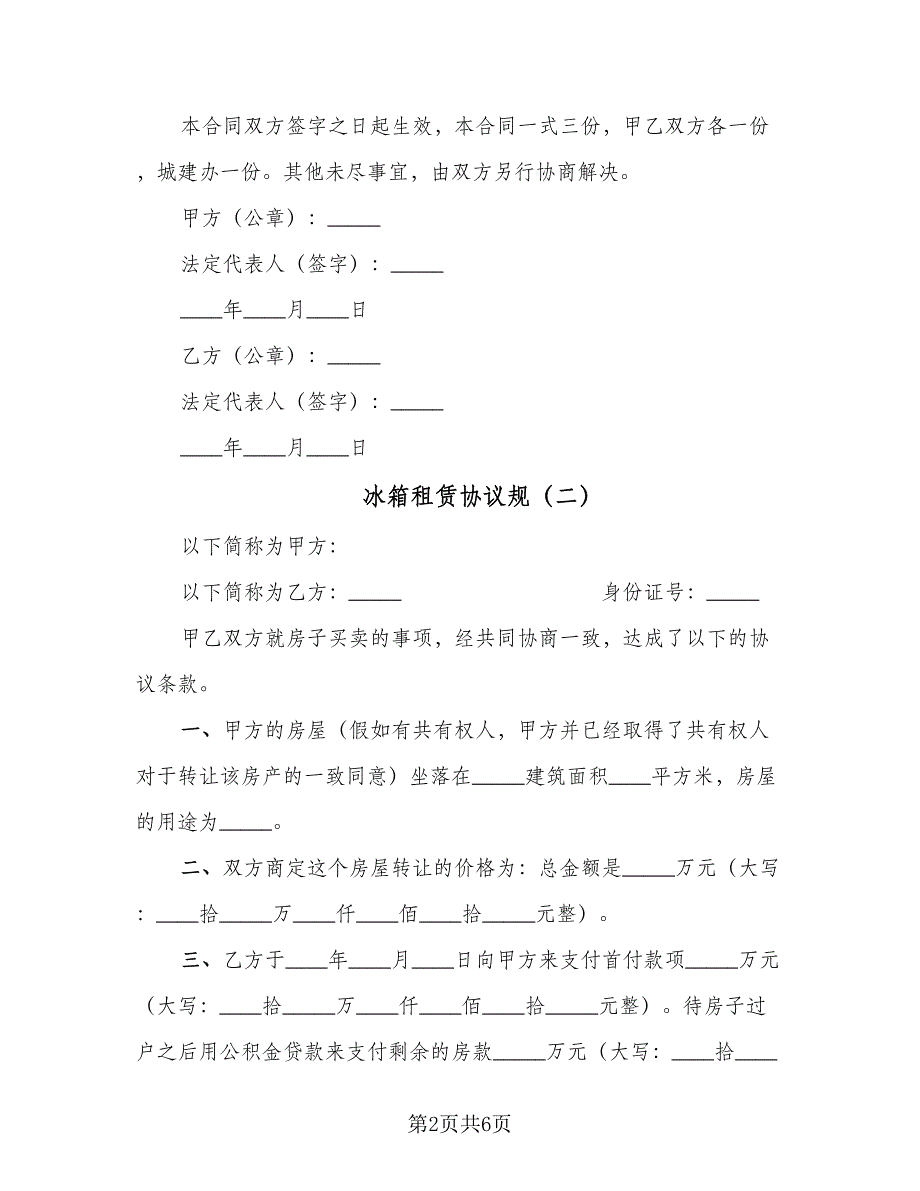 本合同双方签字之日起生效，本合同一式三份，甲乙双方各一份
，城建办一份。其他未尽事宜，由双方另行协商解决。
甲方（公章）：_____
法定代表人（签字）：_____
____年____月____日
乙方（公章）：_____
法定代表人（签字）：_____
____年____月____日
冰箱租赁协议规（二）
以下简称为甲方：
以下简称为乙方：_____ 身份证号：_____
甲乙双方就房子买卖的事项，经共同协商一致，达成了以下的协
议条款。
一、甲方的房屋（假如有共有权人，甲方并已经取得了共有权人
对于转让该房产的一致同意）坐落在_____建筑面积____平方米，房屋
的用途为_____。
二、双方商定这个房屋转让的价格为：总金额是_____万元（大写
：____拾_____万____仟____佰____拾_____元整）。
三、乙方于____年____月____日向甲方来支付首付款项_____万元
（大写：____拾_____万____仟____佰____拾_____元整）。待房子过
户之后用公积金贷款来支付剩余的房款_____万元（大写：____拾____
第2页共6页